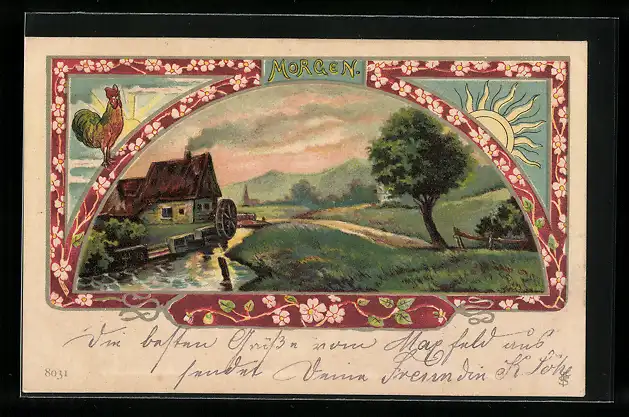 MORGEN.
Die besten Grüße vom Maxfeld aus
sendet Deine Freundin K
8031